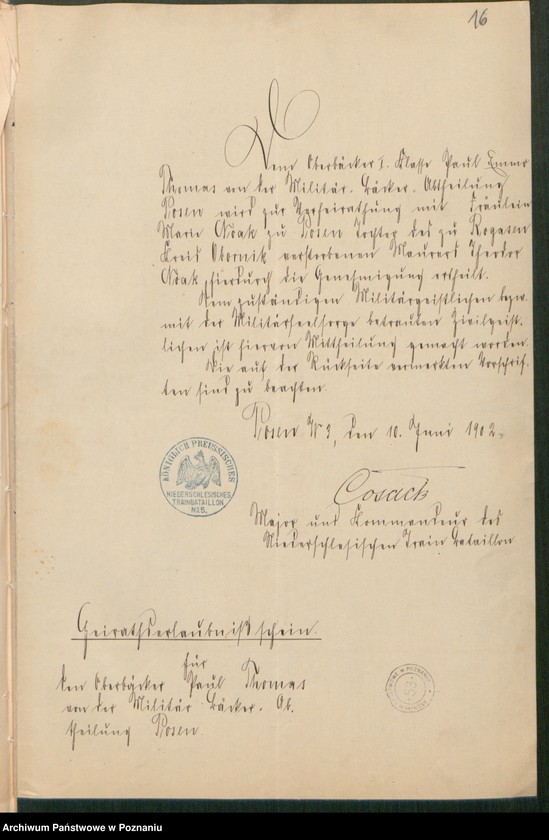 16
Dem Oberbäcker I. Klasse Paul
Thomas von der Militär-Bäcker-Abtheilung
Posen wird zur Verheirathung mit Fräulein
Marie Noak zu Posen Tochter des zu Rogasen
Kreis Obornik verstorbenen Maurers Theodor
Noak, hierdurch die Genehmigung ertheilt.
Dem zuständigen Militärgeistlichen bezw.
mit der Militärseelsorge betrauten Zivilgeist-
lichen ist hiervon Mittheilung gemacht worden.
Die auf der Rückseite vermerkten Vorschrif-
ten sind zu beachten.
Posen W 3, den 10. Juni 1902.
KÖNIGLICH PREUSSISCHES
NIEDERSCHLESISCHES
TRAINBATAILLON
No 5.
Cosack
Major und Kommandeur des
Niederschlesischen Train Bataillon
Heirathserlaubnißschein.
für
den Oberbäcker Paul Thomas
von der Militär-Bäcker-Ab-
theilung Posen.
Archiwum Państwowe w Poznaniu